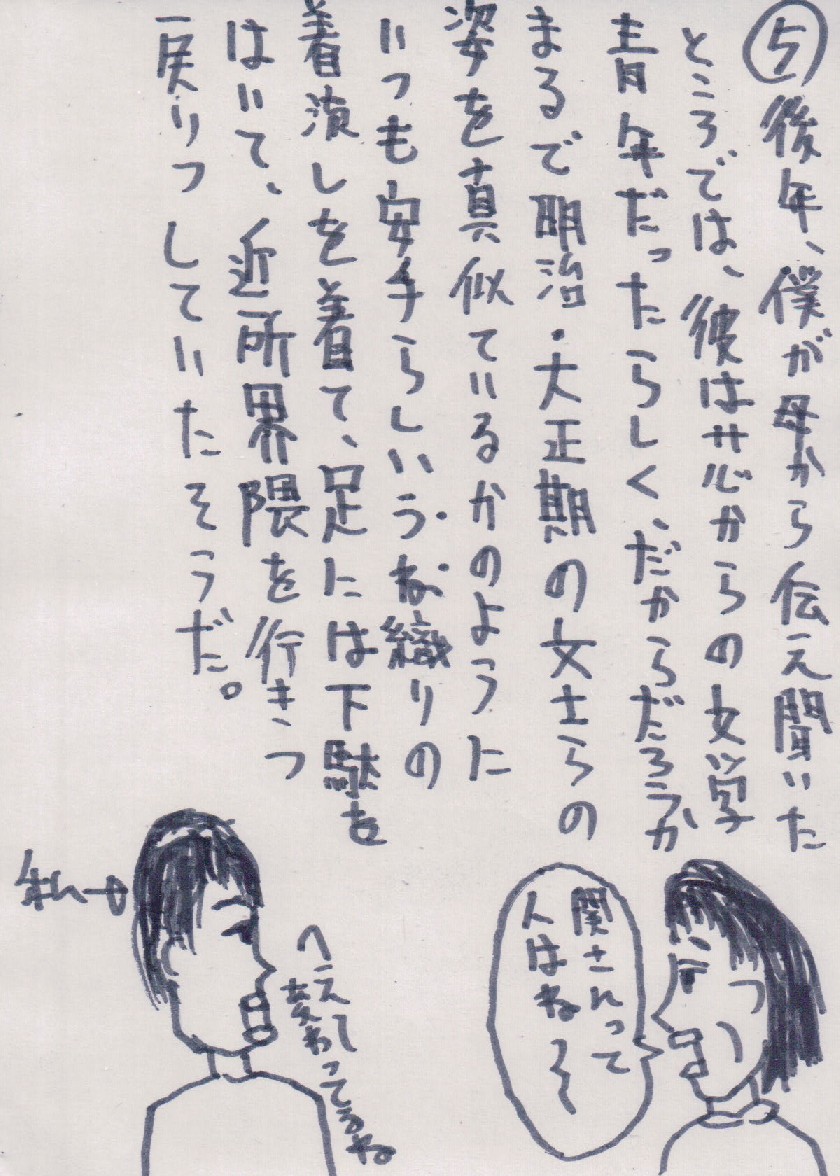 ⑤後年、僕が母から伝え聞いた
ところでは、彼は芯からの文学
青年だったらしく、だからだろうか
まるで明治・大正期の文士らの
姿を真似ているかのように
いつも安手らしいうね織りの
着潰しを着て、足には下駄を
はいて、近所界隈を行きつ
戻りつしていたそうだ。
関さんって
人はねえ〜
へえー
変わってるね
私→